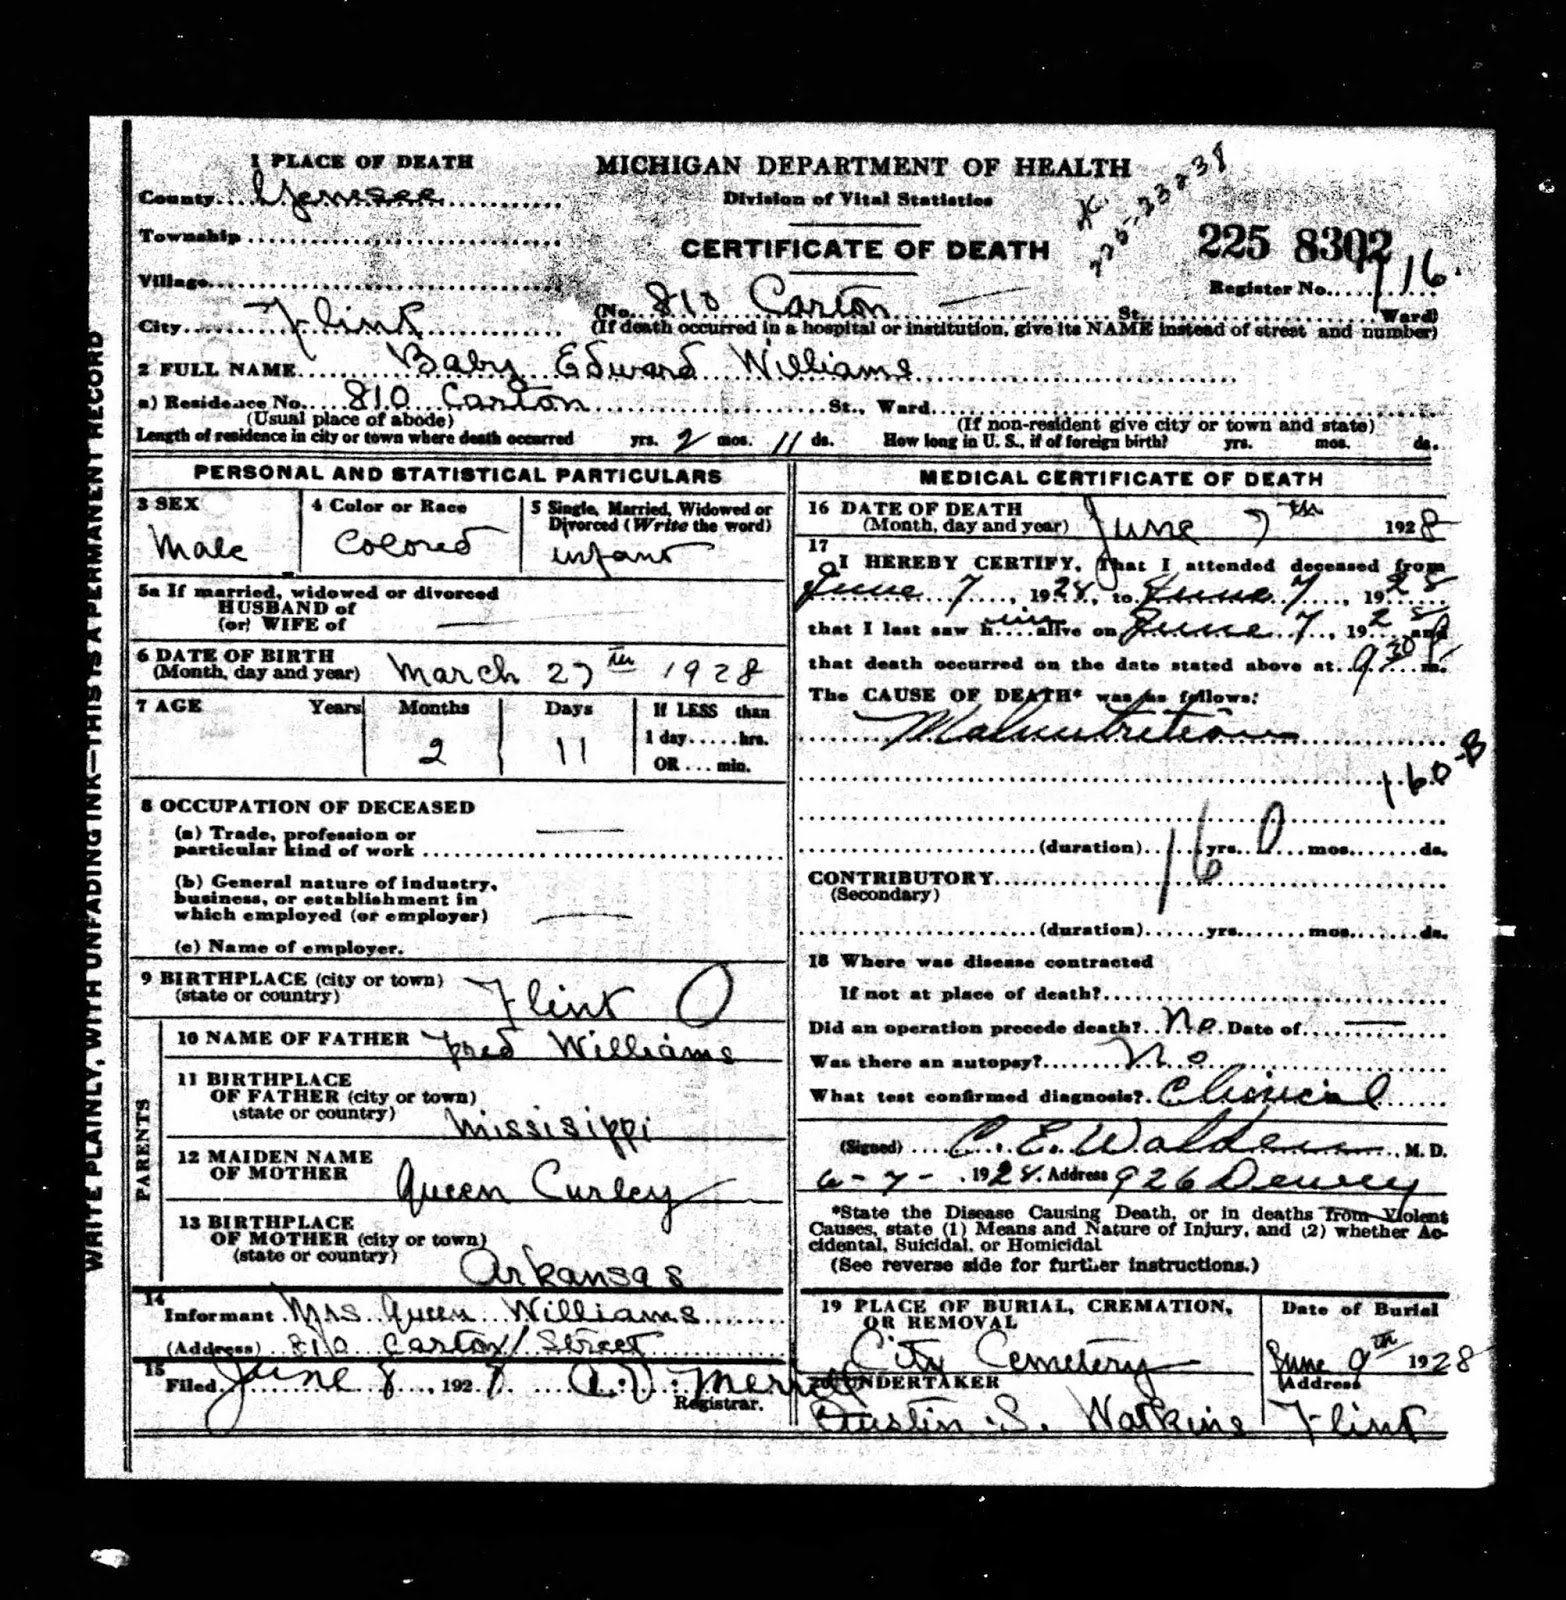 1 PLACE OF DEATH
MICHIGAN DEPARTMENT OF HEALTH
Division of Vital Statistics
CERTIFICATE OF DEATH
225 8302
County Genesee
Township
Village
Register No. 716
City Flint (No. 810 Carton St. Ward)
(If death occurred in a hospital or institution, give its NAME instead of street and number)
2 FULL NAME Baby Edward Williams
a) Residence No. 810 Carton St., Ward
(Usual place of abode) (If non-resident give city or town and state)
Length of residence in city or town where death occurred yrs. 2 mos. 11 ds. How long in U. S., if of foreign birth? yrs. mos. ds.
WRITE PLAINLY, WITH UNFADING INK—THIS IS A PERMANENT RECORD
PERSONAL AND STATISTICAL PARTICULARS
3 SEX
Male
4 Color or Race
Colored
5 Single, Married, Widowed or
Divorced (Write the word)
infant
5a If married, widowed or divorced
HUSBAND of
(or) WIFE of
6 DATE OF BIRTH
(Month, day and year) March 27th 1928
7 AGE Years Months Days If LESS than
2 11 1 day.....hrs.
OR ... min.
8 OCCUPATION OF DECEASED
(a) Trade, profession or
particular kind of work
(b) General nature of industry,
business, or establishment in
which employed (or employer)
(c) Name of employer.
9 BIRTHPLACE (city or town)
(state or country) Flint
PARENTS
10 NAME OF FATHER Fred Williams
11 BIRTHPLACE
OF FATHER (city or town)
(state or country) Mississippi
12 MAIDEN NAME
OF MOTHER Queen Curley
13 BIRTHPLACE
OF MOTHER (city or town)
(state or country) Arkansas
14
Informant Mrs. Queen Williams
(Address) 810 Carton Street
15
Filed June 8, 192
Registrar.
MEDICAL CERTIFICATE OF DEATH
16 DATE OF DEATH
(Month, day and year) June 7th 1928
17
I HEREBY CERTIFY, That I attended deceased from
June 7, 1928, to June 7, 1928
that I last saw him alive on June 7, 1928 and
that death occurred on the date stated above at 9 30 P. m.
The CAUSE OF DEATH* was as follows:
Malnutrition
160-B
160
(duration) yrs. mos. ds.
CONTRIBUTORY
(Secondary)
(duration) yrs. mos. ds.
18 Where was disease contracted
If not at place of death?
Did an operation precede death? No Date of
Was there an autopsy? No
What test confirmed diagnosis? Clinical
(Signed) C. E. Walden M. D.
6-7-, 1928. Address 926 Dewey
*State the Disease Causing Death, or in deaths from Violent
Causes, state (1) Means and Nature of Injury, and (2) whether Ac-
cidental, Suicidal, or Homicidal
(See reverse side for further instructions.)
19 PLACE OF BURIAL, CREMATION,
OR REMOVAL
City Cemetery
Date of Burial
June 9th 1928
20 UNDERTAKER
Austin S. Watkins
Address
Flint